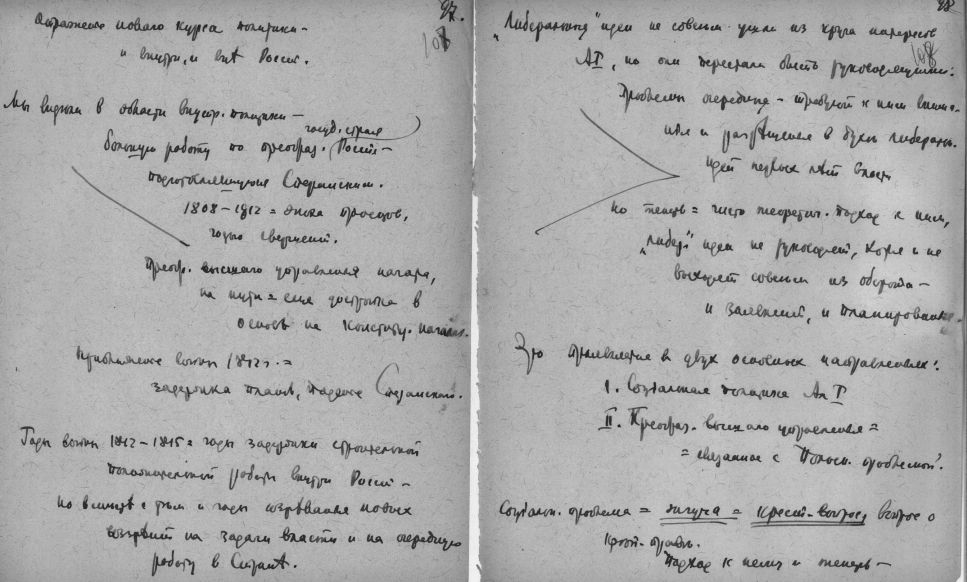 97.
108
Отражение нового курса политики –
и внутри, и внѣ России.
Мы видим в области внутр. политики –
госуд. строя
большую работу по преобраз. России –
подготовляющуюся Сперанским.
1808–1812 = эпоха проектов,
годы свершений.
Преобр. высшего управления начаты,
на пути = еще достройка в
основѣ на конституц. началах.
Приближение войны 1812 г. =
задержка планов, падение Сперанского.
Годы войны 1812–1815 = годы задержки строительной
положительной работы внутри России –
но вмѣстѣ с тѣм и годы созрѣвания новых
воззрѣний на задачи власти и на очередную
работу в Странѣ.
98
108
„Либеральные" идеи не совсем ушли из круга интересов
АI, но они перестали быть руководящими:
Проблемы очередные – требуют к ним внима-
ния и разрѣшения в духѣ либеральн.
идей первых лѣт власти
но теперь = чисто теоретич. подход к ним,
„либер" идеи не руководят, хотя и не
выходят совсем из оборота –
и заявлений, и планирования.
Это проявляется в двух основных направлениях:
I. Социальная политика Ал I
II. Преобраз. высшего управления =
= связанное с Польск. проблемой.
Социальн. проблема = жгуча = крест. вопрос, вопрос о
крѣп. правѣ.
Подход к нему и теперь –